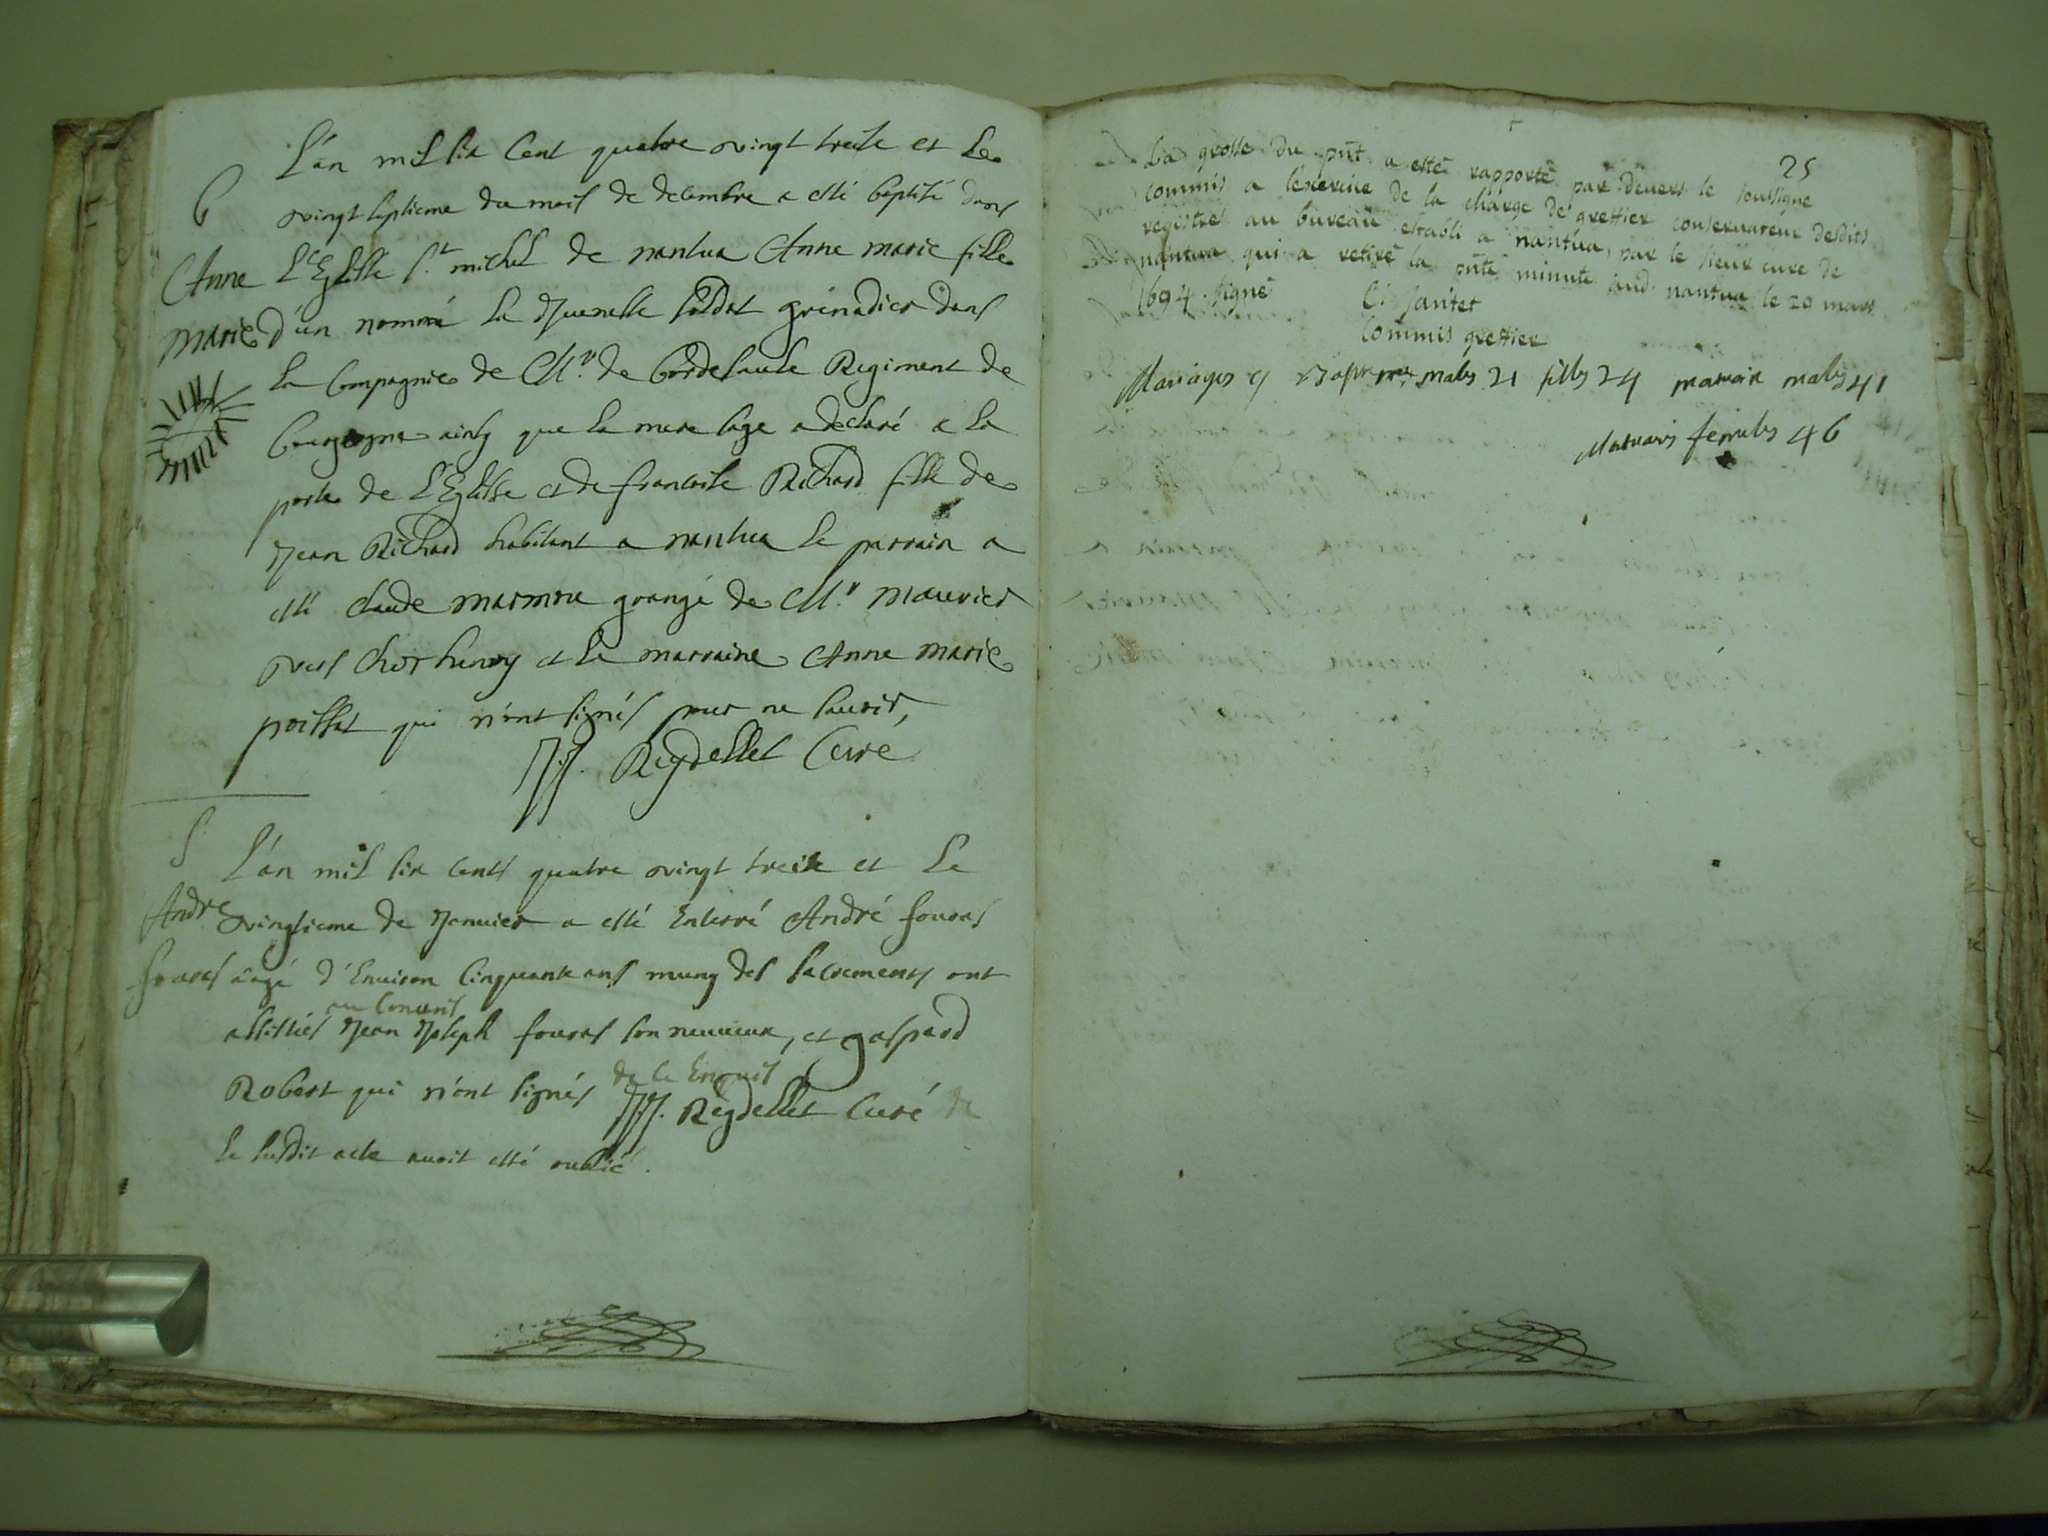 L'an mil six Cent quatre vingt treise et le
B
vingt septieme du mois de decembre a esté baptisé dans
Anne
l'Eglise St. michel de nantua Anne marie fille
marie
d'un nommé la Jeunesse soldat grenadier dans
la Compagnie de Mr. de Regiment de
bourgogne ainsy que la mere sage a declaré a la
porte de l'Eglise et de francoise Richard fille de
Jean Richard habitant a nantua le parrain a
esté claude marmne grangé de Mr. mauvier
vers et la marraine Anne marie
poissat qui n'ont signés pour ne sauoir,
JJ. Reydellet Curé
S
L'an mil six cents quatre vingt treise et le
André
vingtieme de Janvier a esté Enterré André fouras
fouras
aagé d'Environ Cinquante ans muny des sacrements ont
au Convois
assistés Jean Joseph fouras son neuueux, et gaspard
Robert qui n'ont signés de ce Enquis
JJ. Reydellet Curé
le susdit acte auoit esté oublié.
25
La grosse du pñt a esté rapporté par deuers le soussigné
commis a l'exercice de la charge de greffier conseruateur desdits
registres au bureau establi a nantua, par le sieur curé de
nantua qui a retiré la pñte minute aud nantua le 20 mars
1694. signé
C. Jantet
Commis greffier
Mariages 9 Baptmes males 21 filles 24 males 41
Mortuairs femeles 46